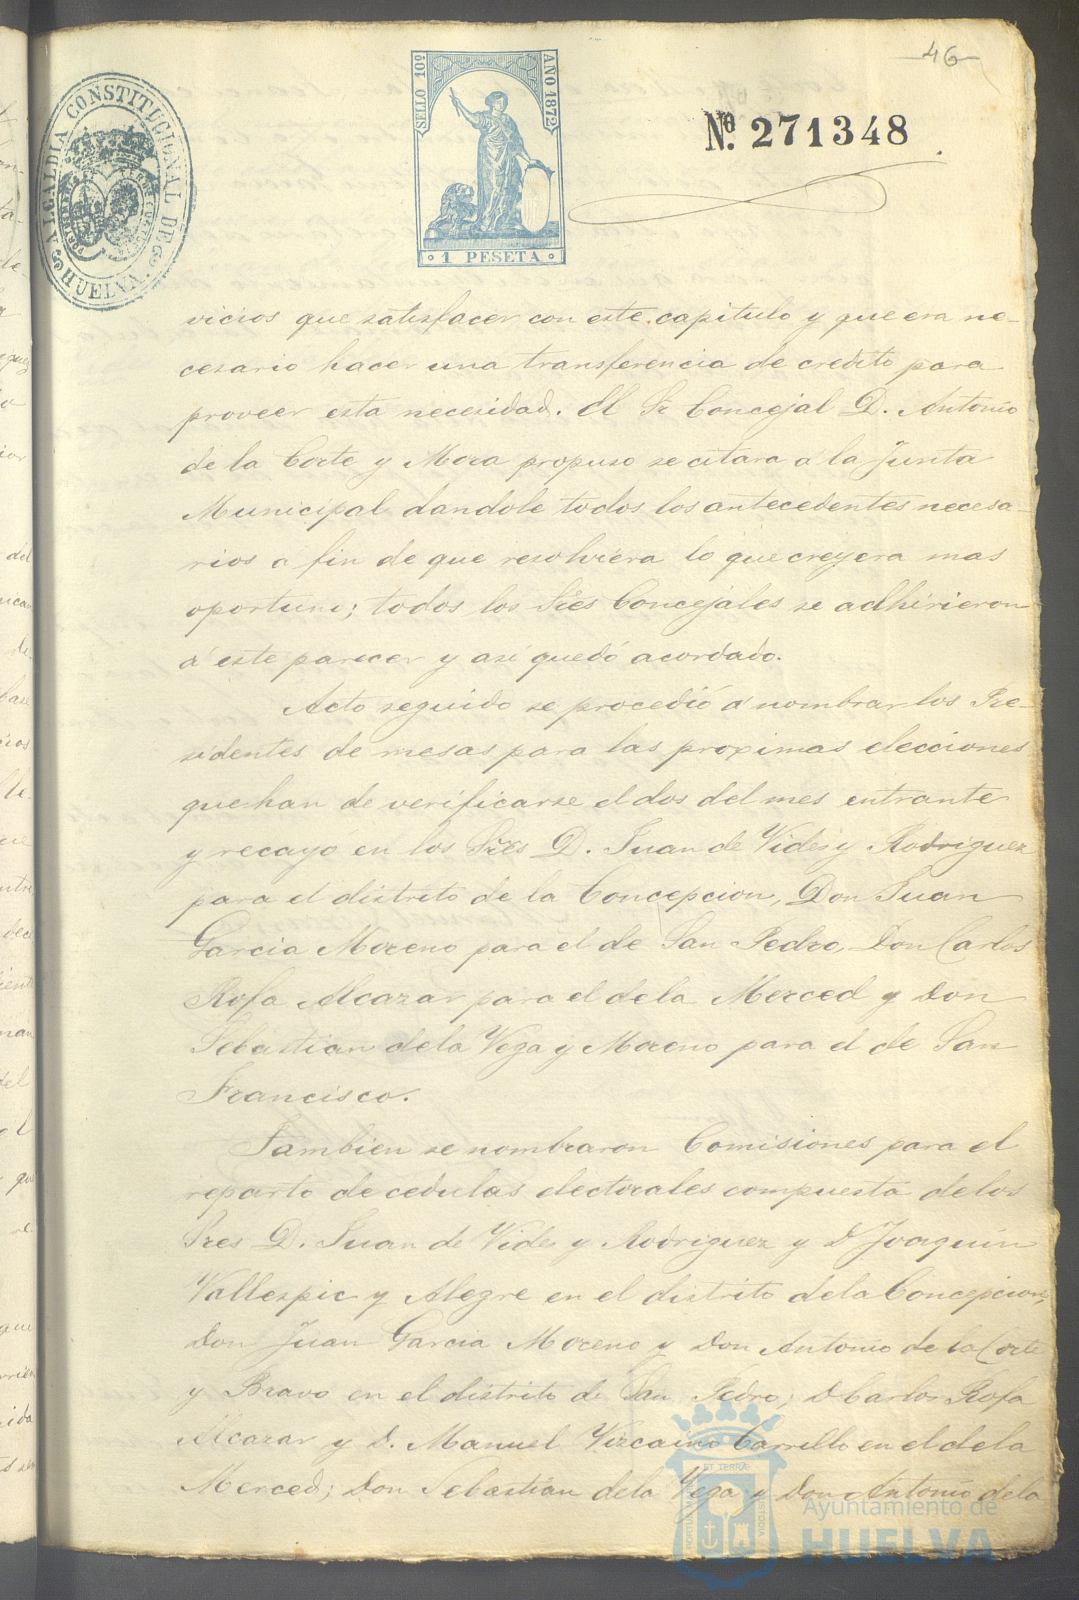 46
ALCALDIA CONSTITUCIONAL DE
HUELVA.
SELLO 10º
AÑO 1872
1 PESETA
Nº. 271348
vicios que satisfacer con este capitulo y que era ne-
cesario hacer una transferencia de credito para
proveer esta necesidad. El Sr Concejal D. Antonio
de la Corte y Mora propuso se citara á la Junta
Municipal dandole todos los antecedentes necesa-
rios á fin de que resolviera lo que creyera mas
oportuno; todos los Sres Concejales se adhirieron
á este parecer y asi quedó acordado.
Acto seguido se procedió á nombrar los Pre-
sidentes de mesas para las proximas elecciones
que han de verificarse el dos del mes entrante
y recayó en los Sres D. Juan de Vides y Rodriguez
para el distrito de la Concepcion, Don Juan
Garcia Moreno para el de San Pedro, Don Carlos
Rofa Alcazar para el de la Merced y Don
Sebastian de la Vega y Moreno para el de San
Francisco.
Tambien se nombraron Comisiones para el
reparto de cedulas electorales compuesta de los
Sres D. Juan de Vides y Rodriguez y D Joaquin
Vallespic y Alegre en el distrito de la Concepcion,
Don Juan Garcia Moreno y Don Antonio de la Corte
y Bravo en el distrito de San Pedro; D Carlos Rofa
Alcazar y D. Manuel Vizcaino Carrillo en el de la
Merced; Don Sebastian de la Vega y Don Antonio de la
Ayuntamiento de
HUELVA